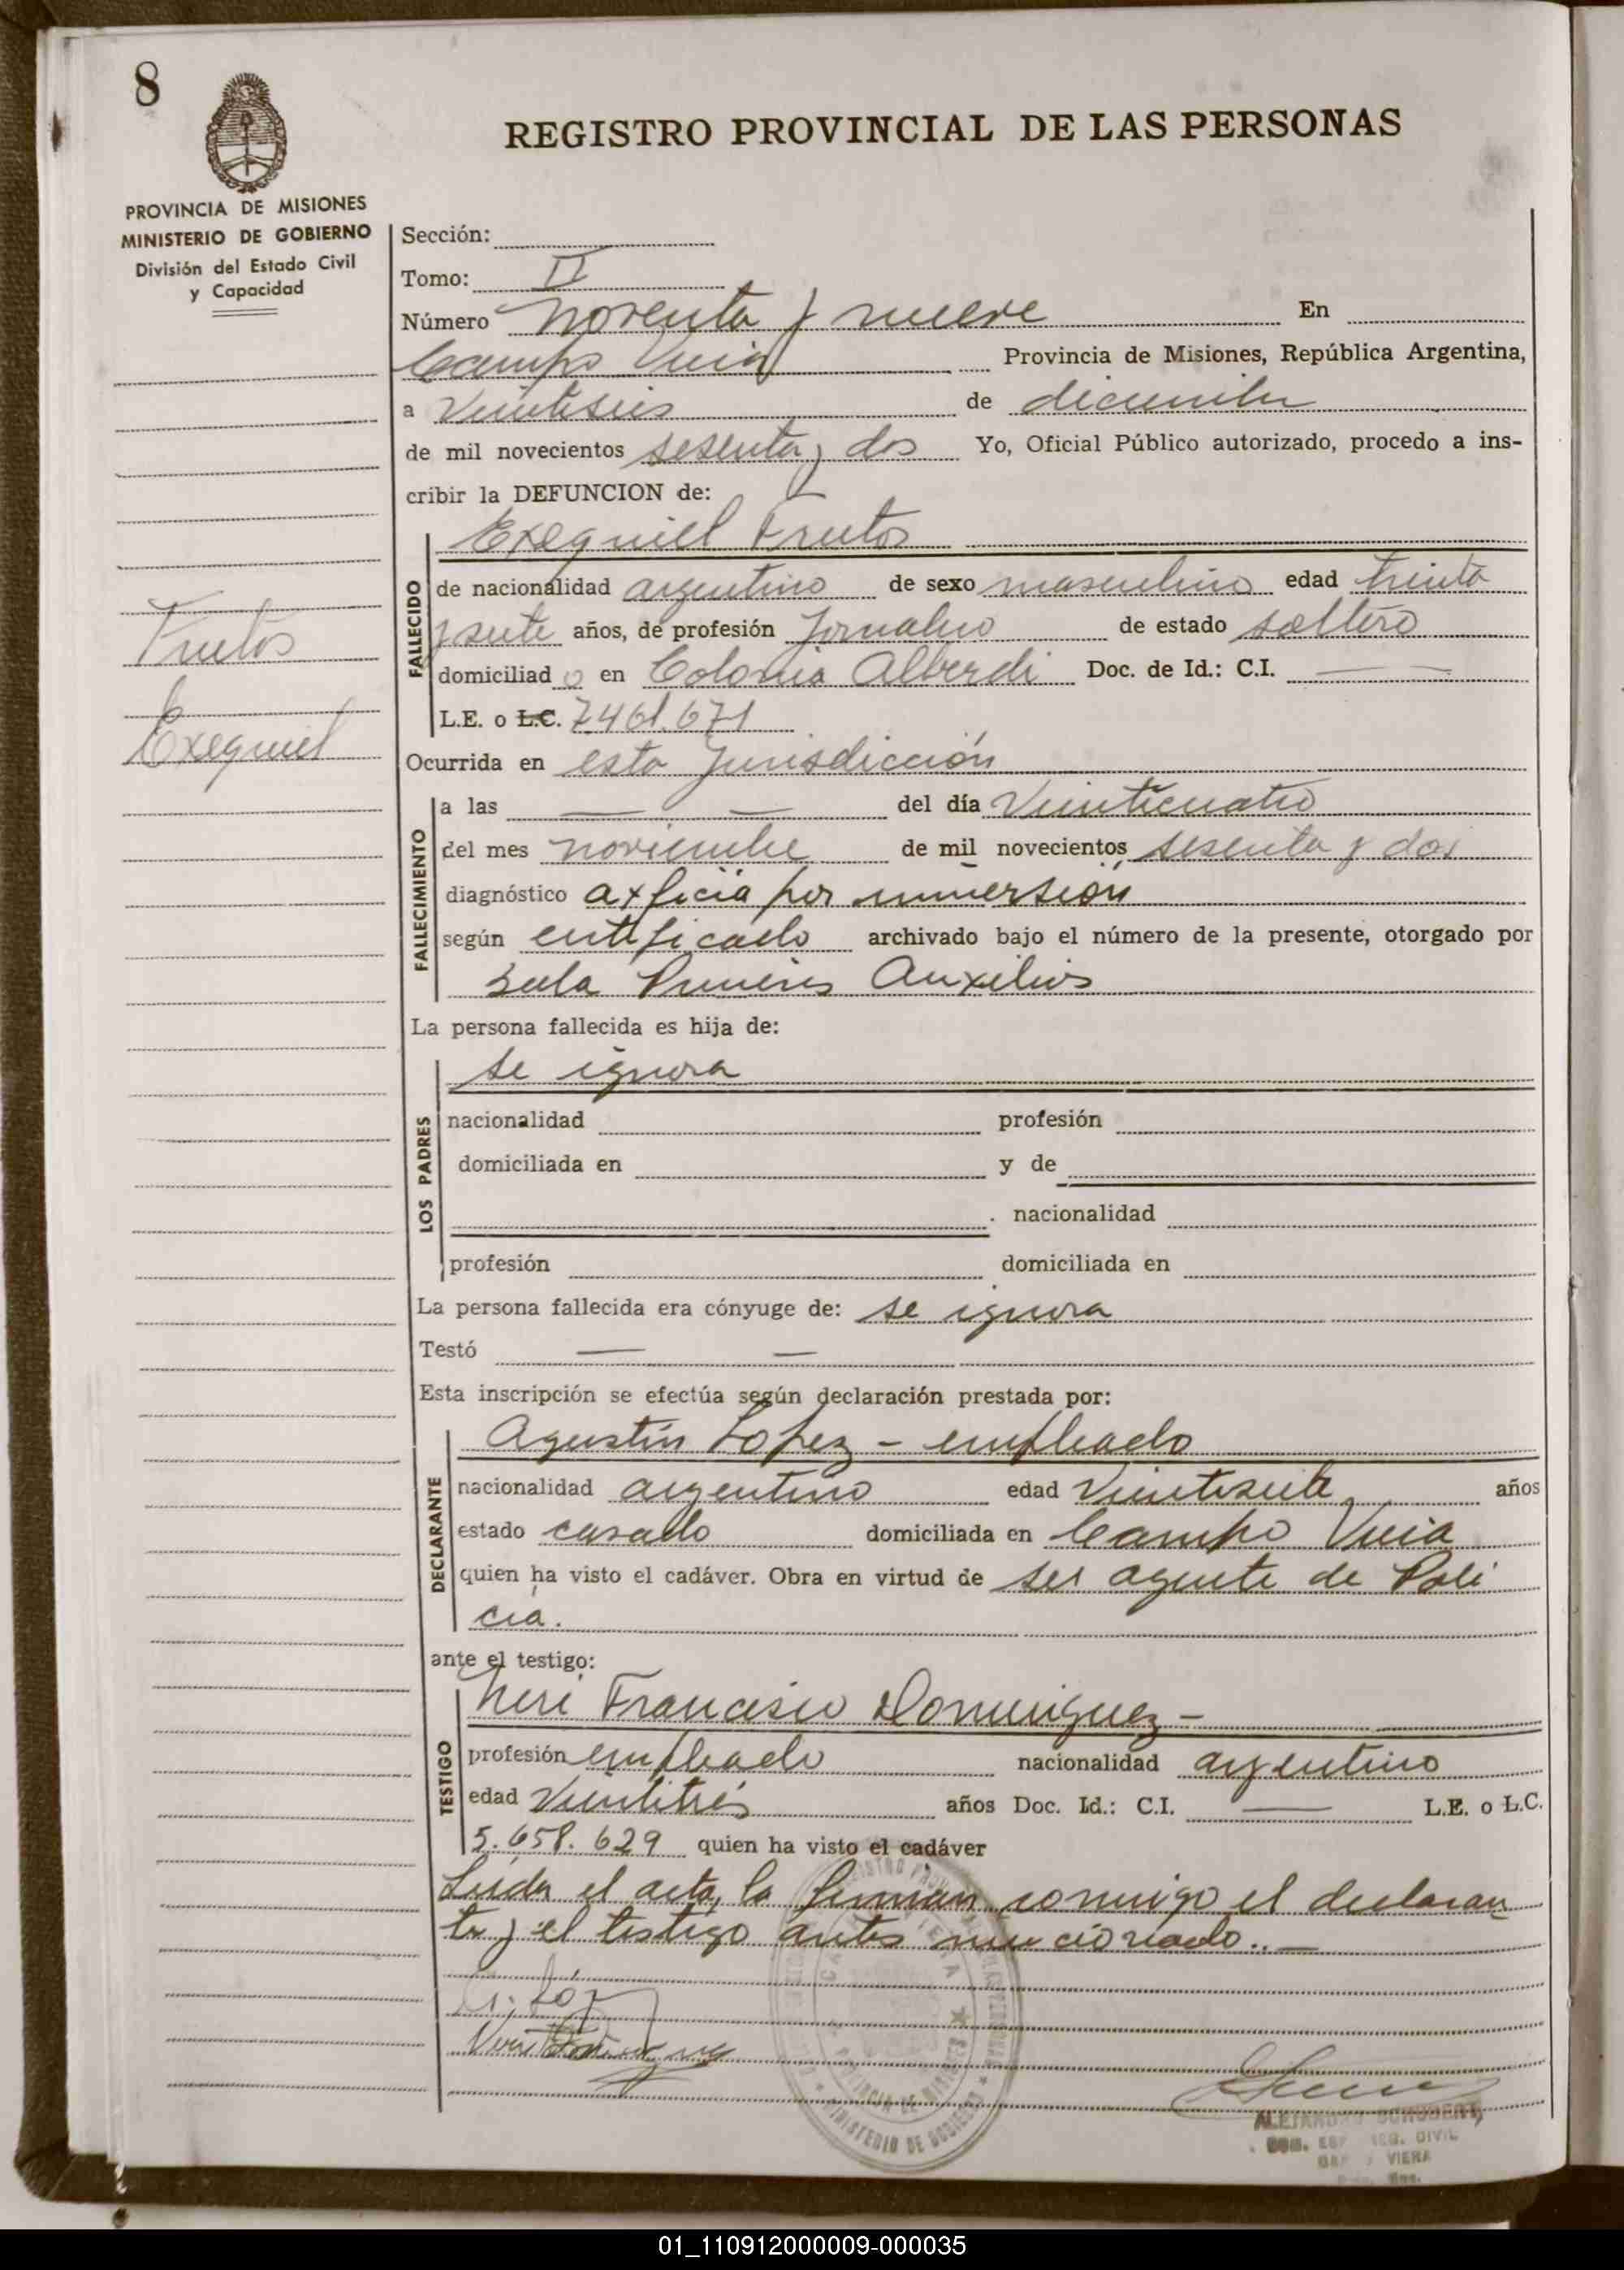 8
REGISTRO PROVINCIAL DE LAS PERSONAS
PROVINCIA DE MISIONES
MINISTERIO DE GOBIERNO
División del Estado Civil
y Capacidad
Sección:
Tomo: II
Número noventa y nueve En
Campo Viera Provincia de Misiones, República Argentina,
a veintiseis de diciembre
de mil novecientos sesenta y dos Yo, Oficial Público autorizado, procedo a ins-
cribir la DEFUNCION de:
Exequiel Frutos
FALLECIDO
de nacionalidad argentino de sexo masculino edad treinta
y siete años, de profesión Jornalero de estado soltero
domiciliad o en Colonia Alberdi Doc. de Id.: C.I. — —
L.E. o L.C. 7.461.671
Frutos
Exequiel
Ocurrida en esta Jurisdicción
FALLECIMIENTO
a las — — del día veinticuatro
del mes noviembre de mil novecientos sesenta y dos
diagnóstico axficia por inmersión
según certificado archivado bajo el número de la presente, otorgado por
Sala Primeros Auxilios
La persona fallecida es hija de:
LOS PADRES
se ignora
nacionalidad profesión
domiciliada en y de
nacionalidad
profesión domiciliada en
La persona fallecida era cónyuge de: se ignora
Testó — —
Esta inscripción se efectúa según declaración prestada por:
DECLARANTE
Agustín Lopez - empleado
nacionalidad argentino edad veintisiete años
estado casado domiciliada en Campo Viera
quien ha visto el cadáver. Obra en virtud de ser agente de Poli
cia.
ante el testigo:
TESTIGO
Neri Francisco Dominguez -
profesión empleado nacionalidad argentino
edad veintitrés años Doc. Id.: C.I. — L.E. o L.C.
5.658.629 quien ha visto el cadáver
Leida el acta, la firman conmigo el declaran
te y el testigo antes mencionado.. —
ALEJANDRO SCHUBERT
VIERA
MINISTERIO DE GOBIERNO
01_110912000009-000035